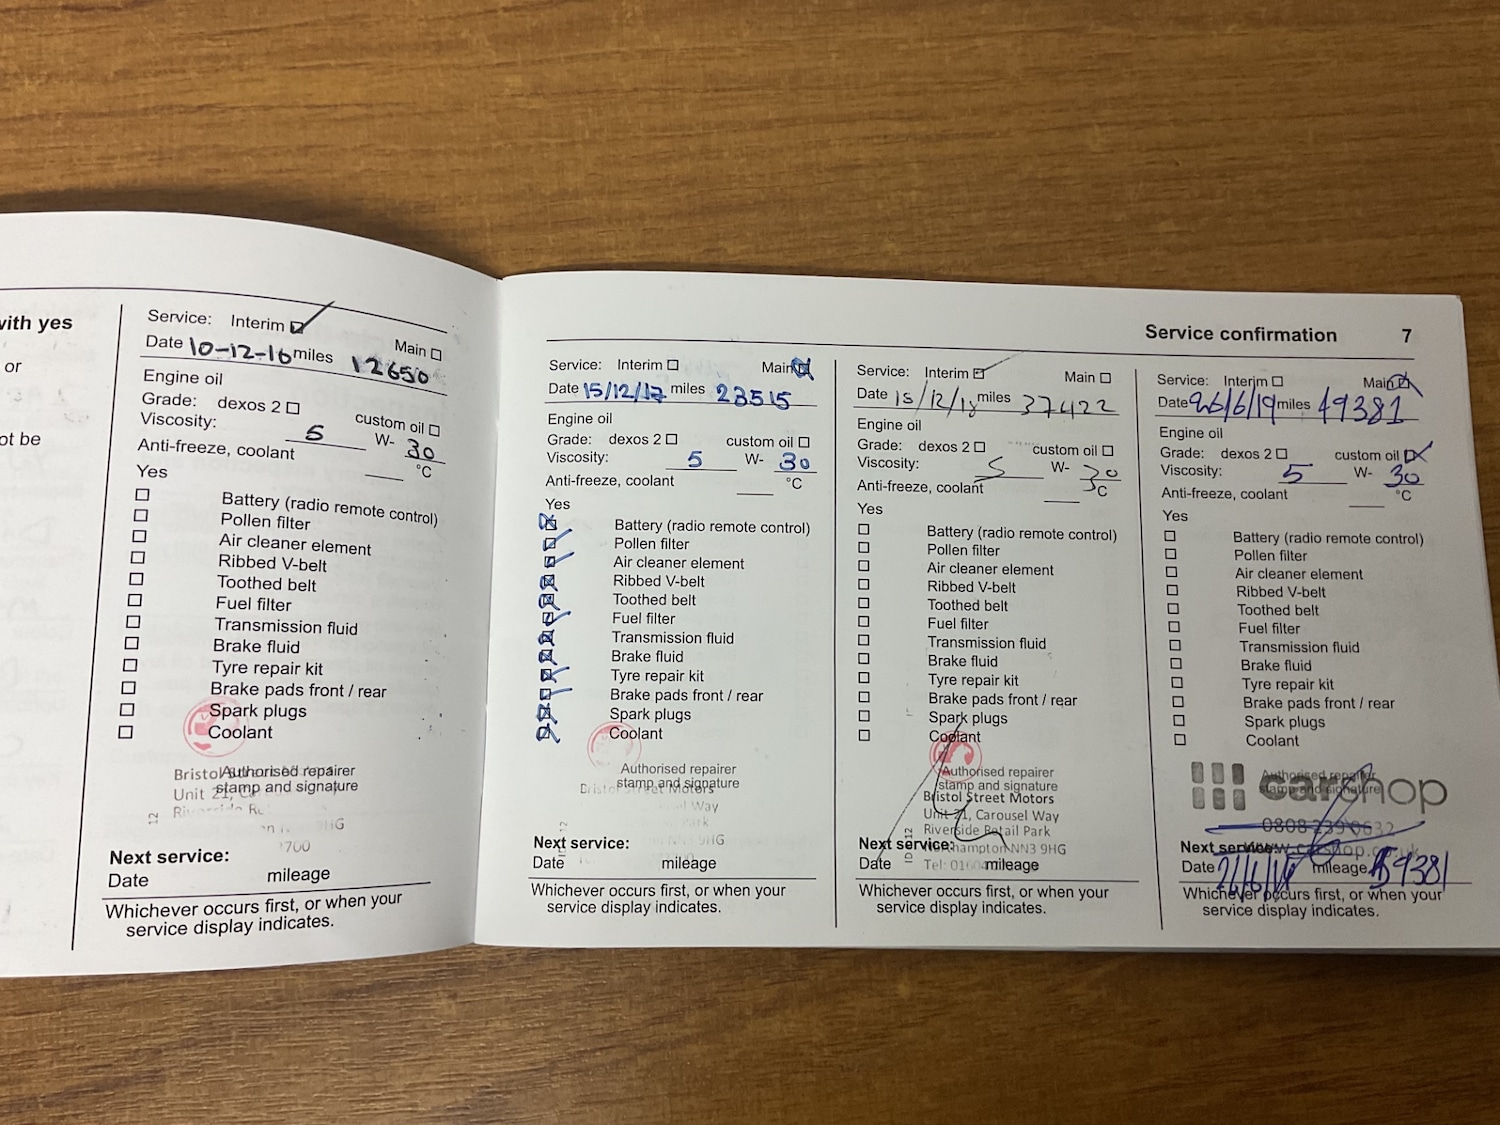 with yes
or
ot be
Service: Interim Main
Date 10-12-16 miles 12650
Engine oil
Grade: dexos 2 custom oil
Viscosity: 5 W- 30
Anti-freeze, coolant °C
Yes
Battery (radio remote control)
Pollen filter
Air cleaner element
Ribbed V-belt
Toothed belt
Fuel filter
Transmission fluid
Brake fluid
Tyre repair kit
Brake pads front / rear
Spark plugs
Coolant
Authorised repairer
stamp and signature
Bristol
Unit 21,
9HG
Next service:
Date mileage
Whichever occurs first, or when your
service display indicates.
Service confirmation 7
Service: Interim Main
Date 15/12/17 miles 23515
Engine oil
Grade: dexos 2 custom oil
Viscosity: 5 W- 30
Anti-freeze, coolant °C
Yes
Battery (radio remote control)
Pollen filter
Air cleaner element
Ribbed V-belt
Toothed belt
Fuel filter
Transmission fluid
Brake fluid
Tyre repair kit
Brake pads front / rear
Spark plugs
Coolant
Authorised repairer
stamp and signature
Bristol Street Motors
Way
Park
NN3 9HG
Next service:
Date mileage
Whichever occurs first, or when your
service display indicates.
Service: Interim Main
Date 15/12/18 miles 37422
Engine oil
Grade: dexos 2 custom oil
Viscosity: 5 W- 30
Anti-freeze, coolant °C
Yes
Battery (radio remote control)
Pollen filter
Air cleaner element
Ribbed V-belt
Toothed belt
Fuel filter
Transmission fluid
Brake fluid
Tyre repair kit
Brake pads front / rear
Spark plugs
Coolant
Authorised repairer
stamp and signature
Bristol Street Motors
Unit 21, Carousel Way
Riverside Retail Park
Northampton NN3 9HG
Tel:
Next service:
Date mileage
Whichever occurs first, or when your
service display indicates.
Service: Interim Main
Date 26/6/19 miles 49381
Engine oil
Grade: dexos 2 custom oil
Viscosity: 5 W- 30
Anti-freeze, coolant °C
Yes
Battery (radio remote control)
Pollen filter
Air cleaner element
Ribbed V-belt
Toothed belt
Fuel filter
Transmission fluid
Brake fluid
Tyre repair kit
Brake pads front / rear
Spark plugs
Coolant
Authorised repairer
stamp and signature
carshop
0808 239 0632
www.carshop.co.uk
Next service:
Date mileage 59381
Whichever occurs first, or when your
service display indicates.